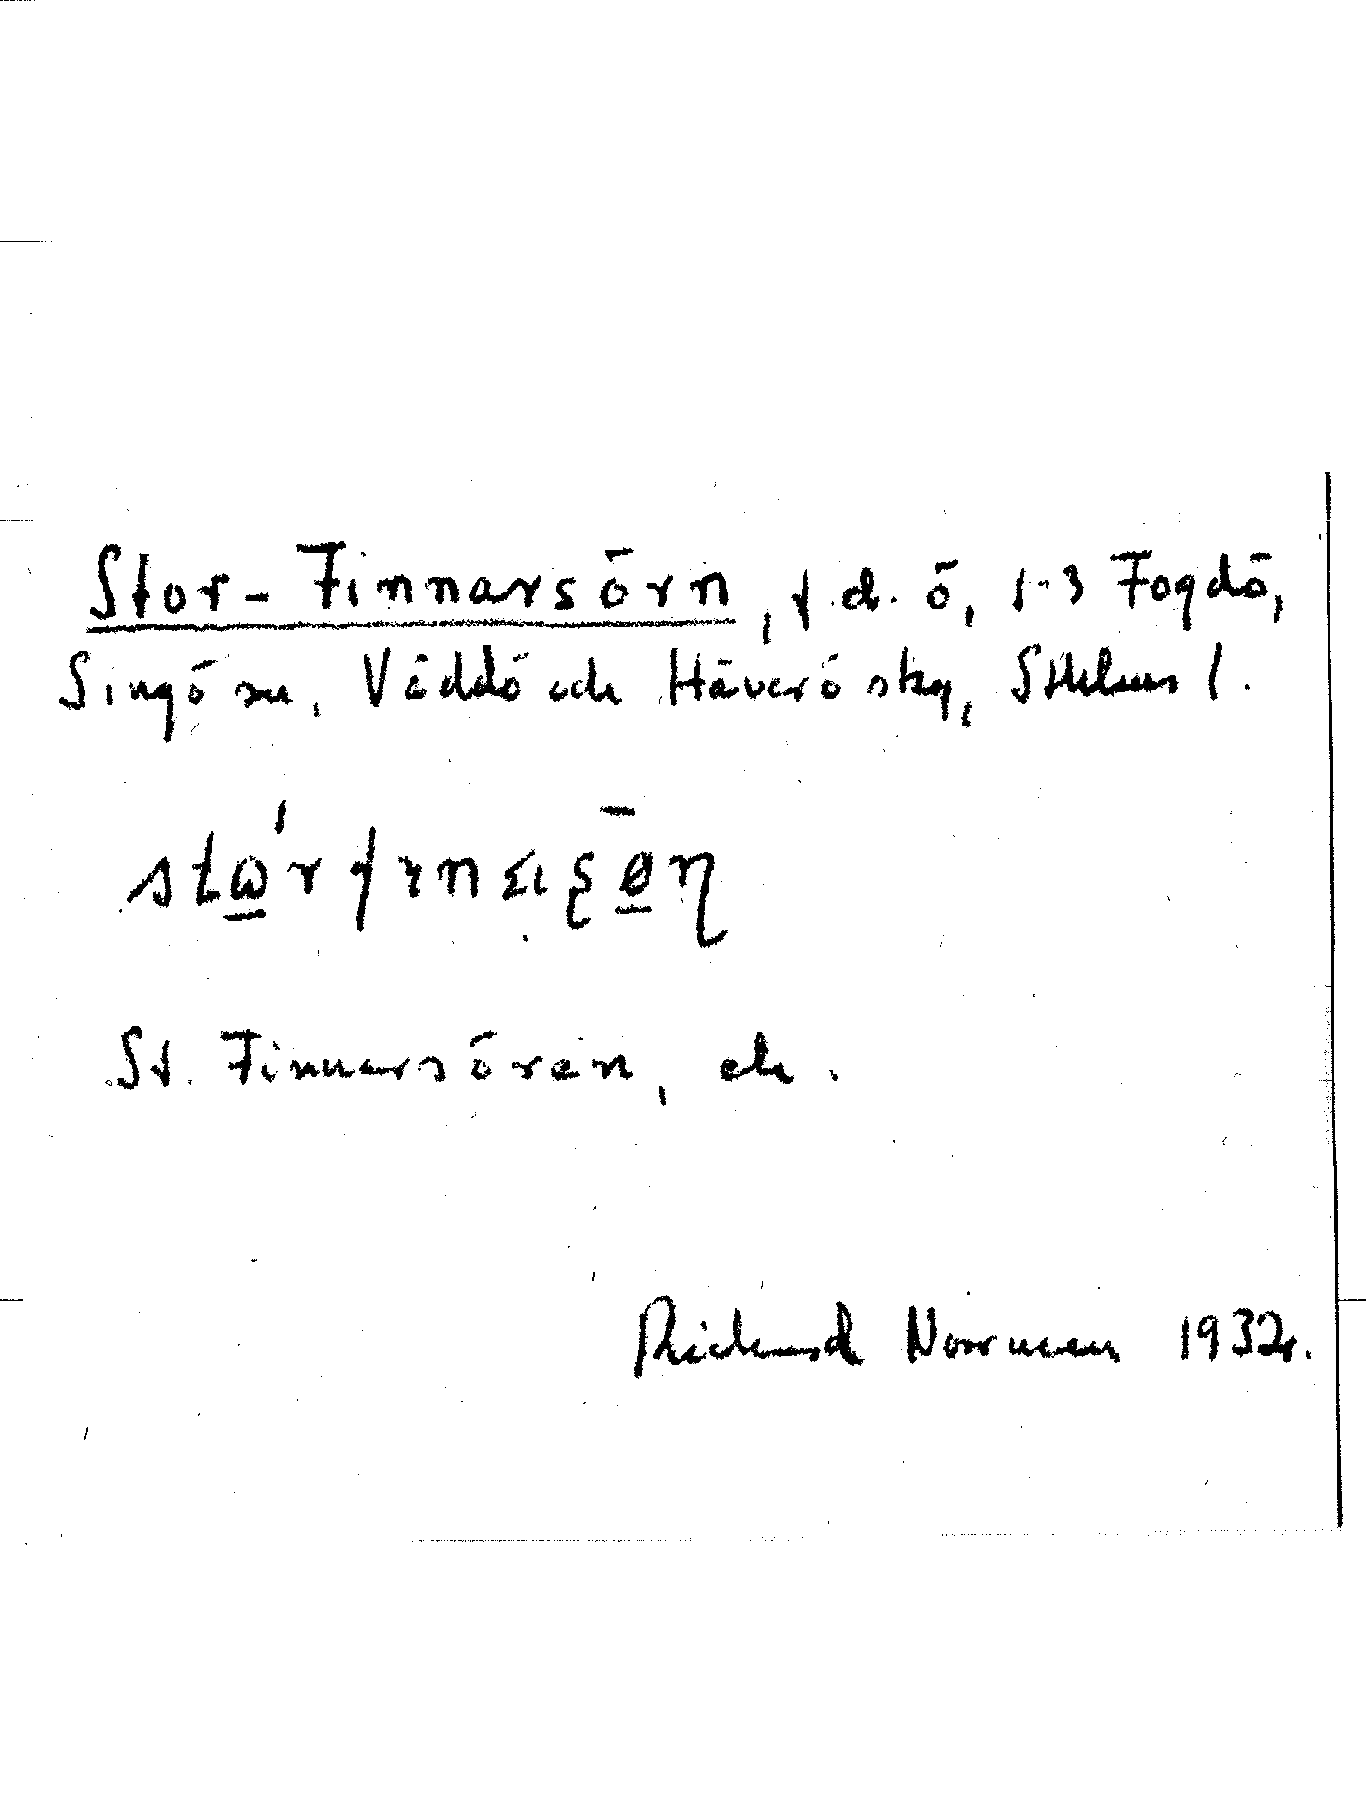 Stor-Finnarsörn, f.d. ö, 1-3 Fogdö,
Singö sn, Väddö och Häverö skg, Sthlms l.
St. Finnarsören, ek.
Rickard Norrman 1932.